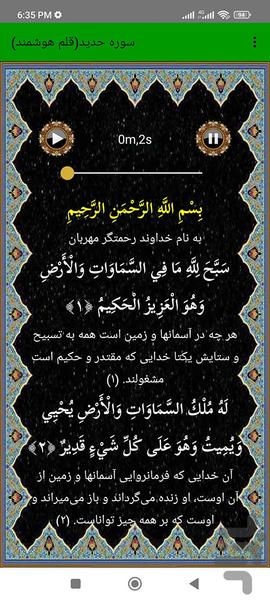 6:35 PM
سوره حدید(قلم هوشمند)
0m,2s
بِسْمِ اللَّهِ الرَّحْمَنِ الرَّحِيمِ
به نام خداوند رحمتگر مهربان
سَبَّحَ لِلَّهِ مَا فِي السَّمَاوَاتِ وَالْأَرْضِ
وَهُوَ الْعَزِيزُ الْحَكِيمُ ﴿۱﴾
هر چه در آسمانها و زمین است همه به تسبیح
و ستایش یکتا خدایی که مقتدر و حکیم است
مشغولند. (۱)
لَهُ مُلْكُ السَّمَاوَاتِ وَالْأَرْضِ يُحْيِي
وَيُمِيتُ وَهُوَ عَلَى كُلِّ شَيْءٍ قَدِيرٌ ﴿۲﴾
آن خدایی که فرمانروایی آسمانها و زمین از
آن اوست، او زنده می‌گرداند و باز می‌میراند و
اوست که بر همه چیز تواناست. (۲)